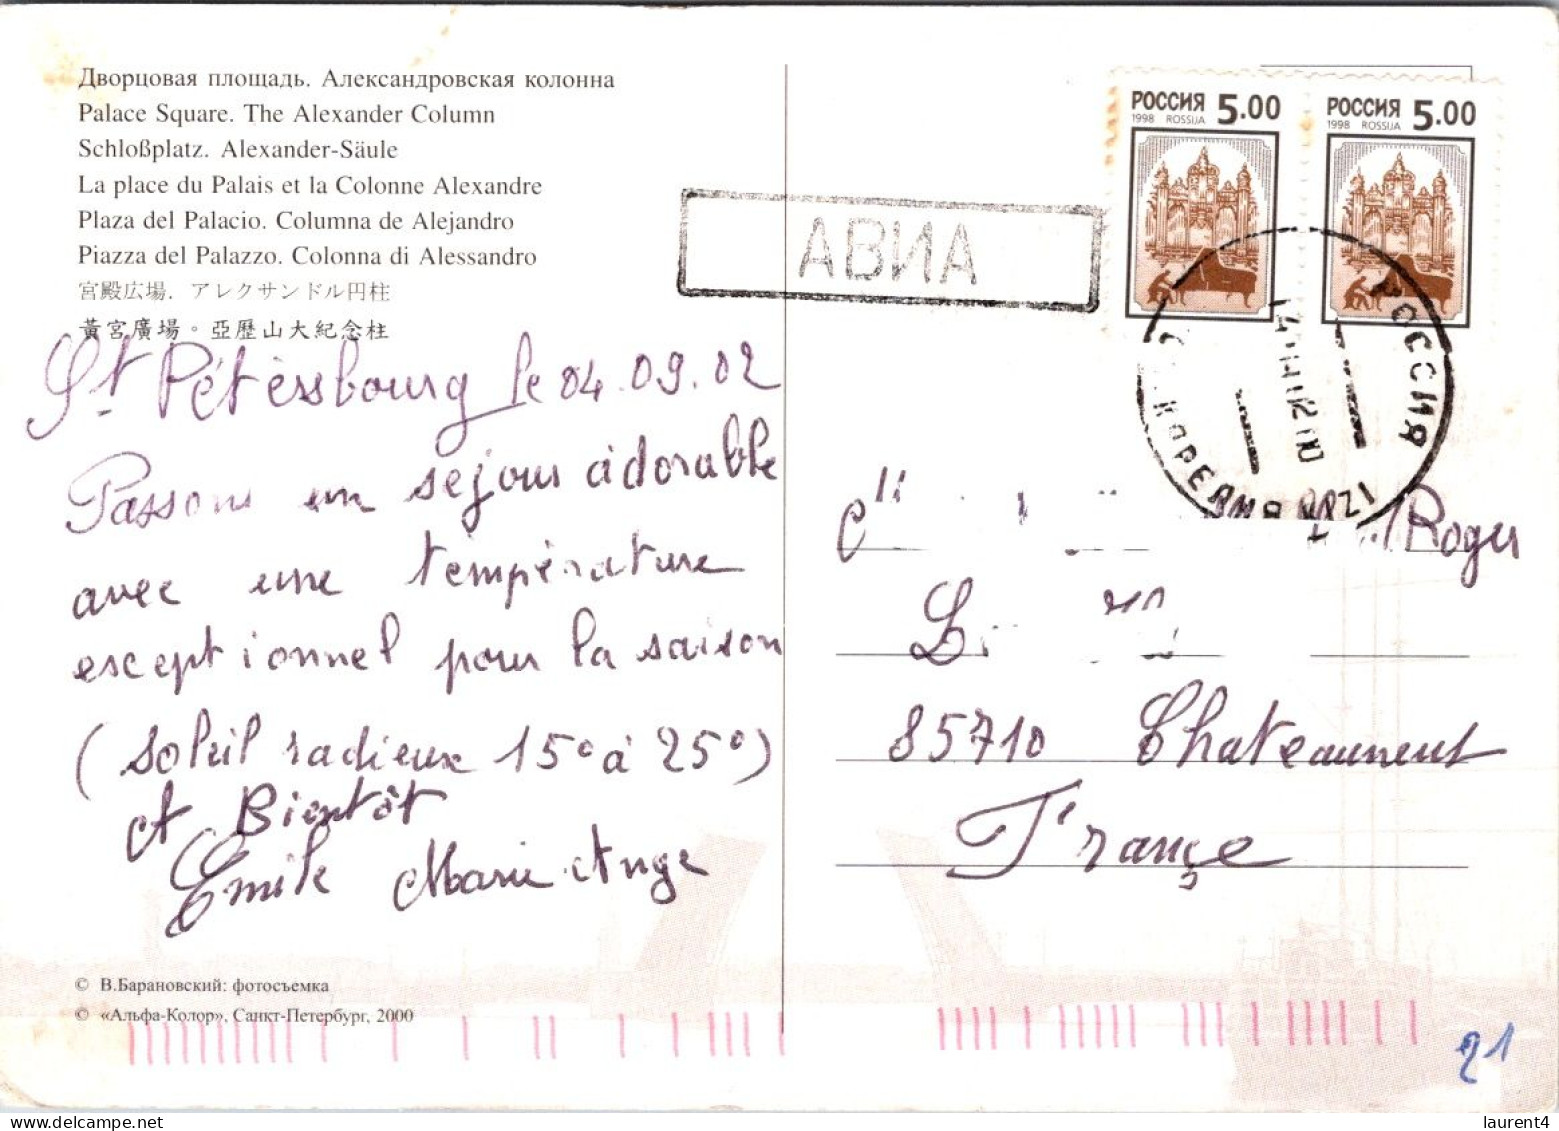 Дворцовая площадь. Александровская колонна
Palace Square. The Alexander Column
Schloßplatz. Alexander-Säule
La place du Palais et la Colonne Alexandre
Plaza del Palacio. Columna de Alejandro
Piazza del Palazzo. Colonna di Alessandro
宮殿広場．アレクサンドル円柱
黃宮廣場。亞歷山大紀念柱
St Pétersbourg le 04.09.02
Passons un séjour adorable
avec une température
exceptionnel pour la saison
(soleil radieux 15° à 25°)
A Bientôt
Emile Marie Ange
© В.Барановский: фотосъемка
© «Альфа-Колор», Санкт-Петербург, 2000
РОССИЯ 5.00
1998 ROSSIJA
РОССИЯ 5.00
1998 ROSSIJA
АВИА
РОССИЯ
КАРЕЛИЯ
Roger
85710 Chateauneuf
Françe
21
laurent4